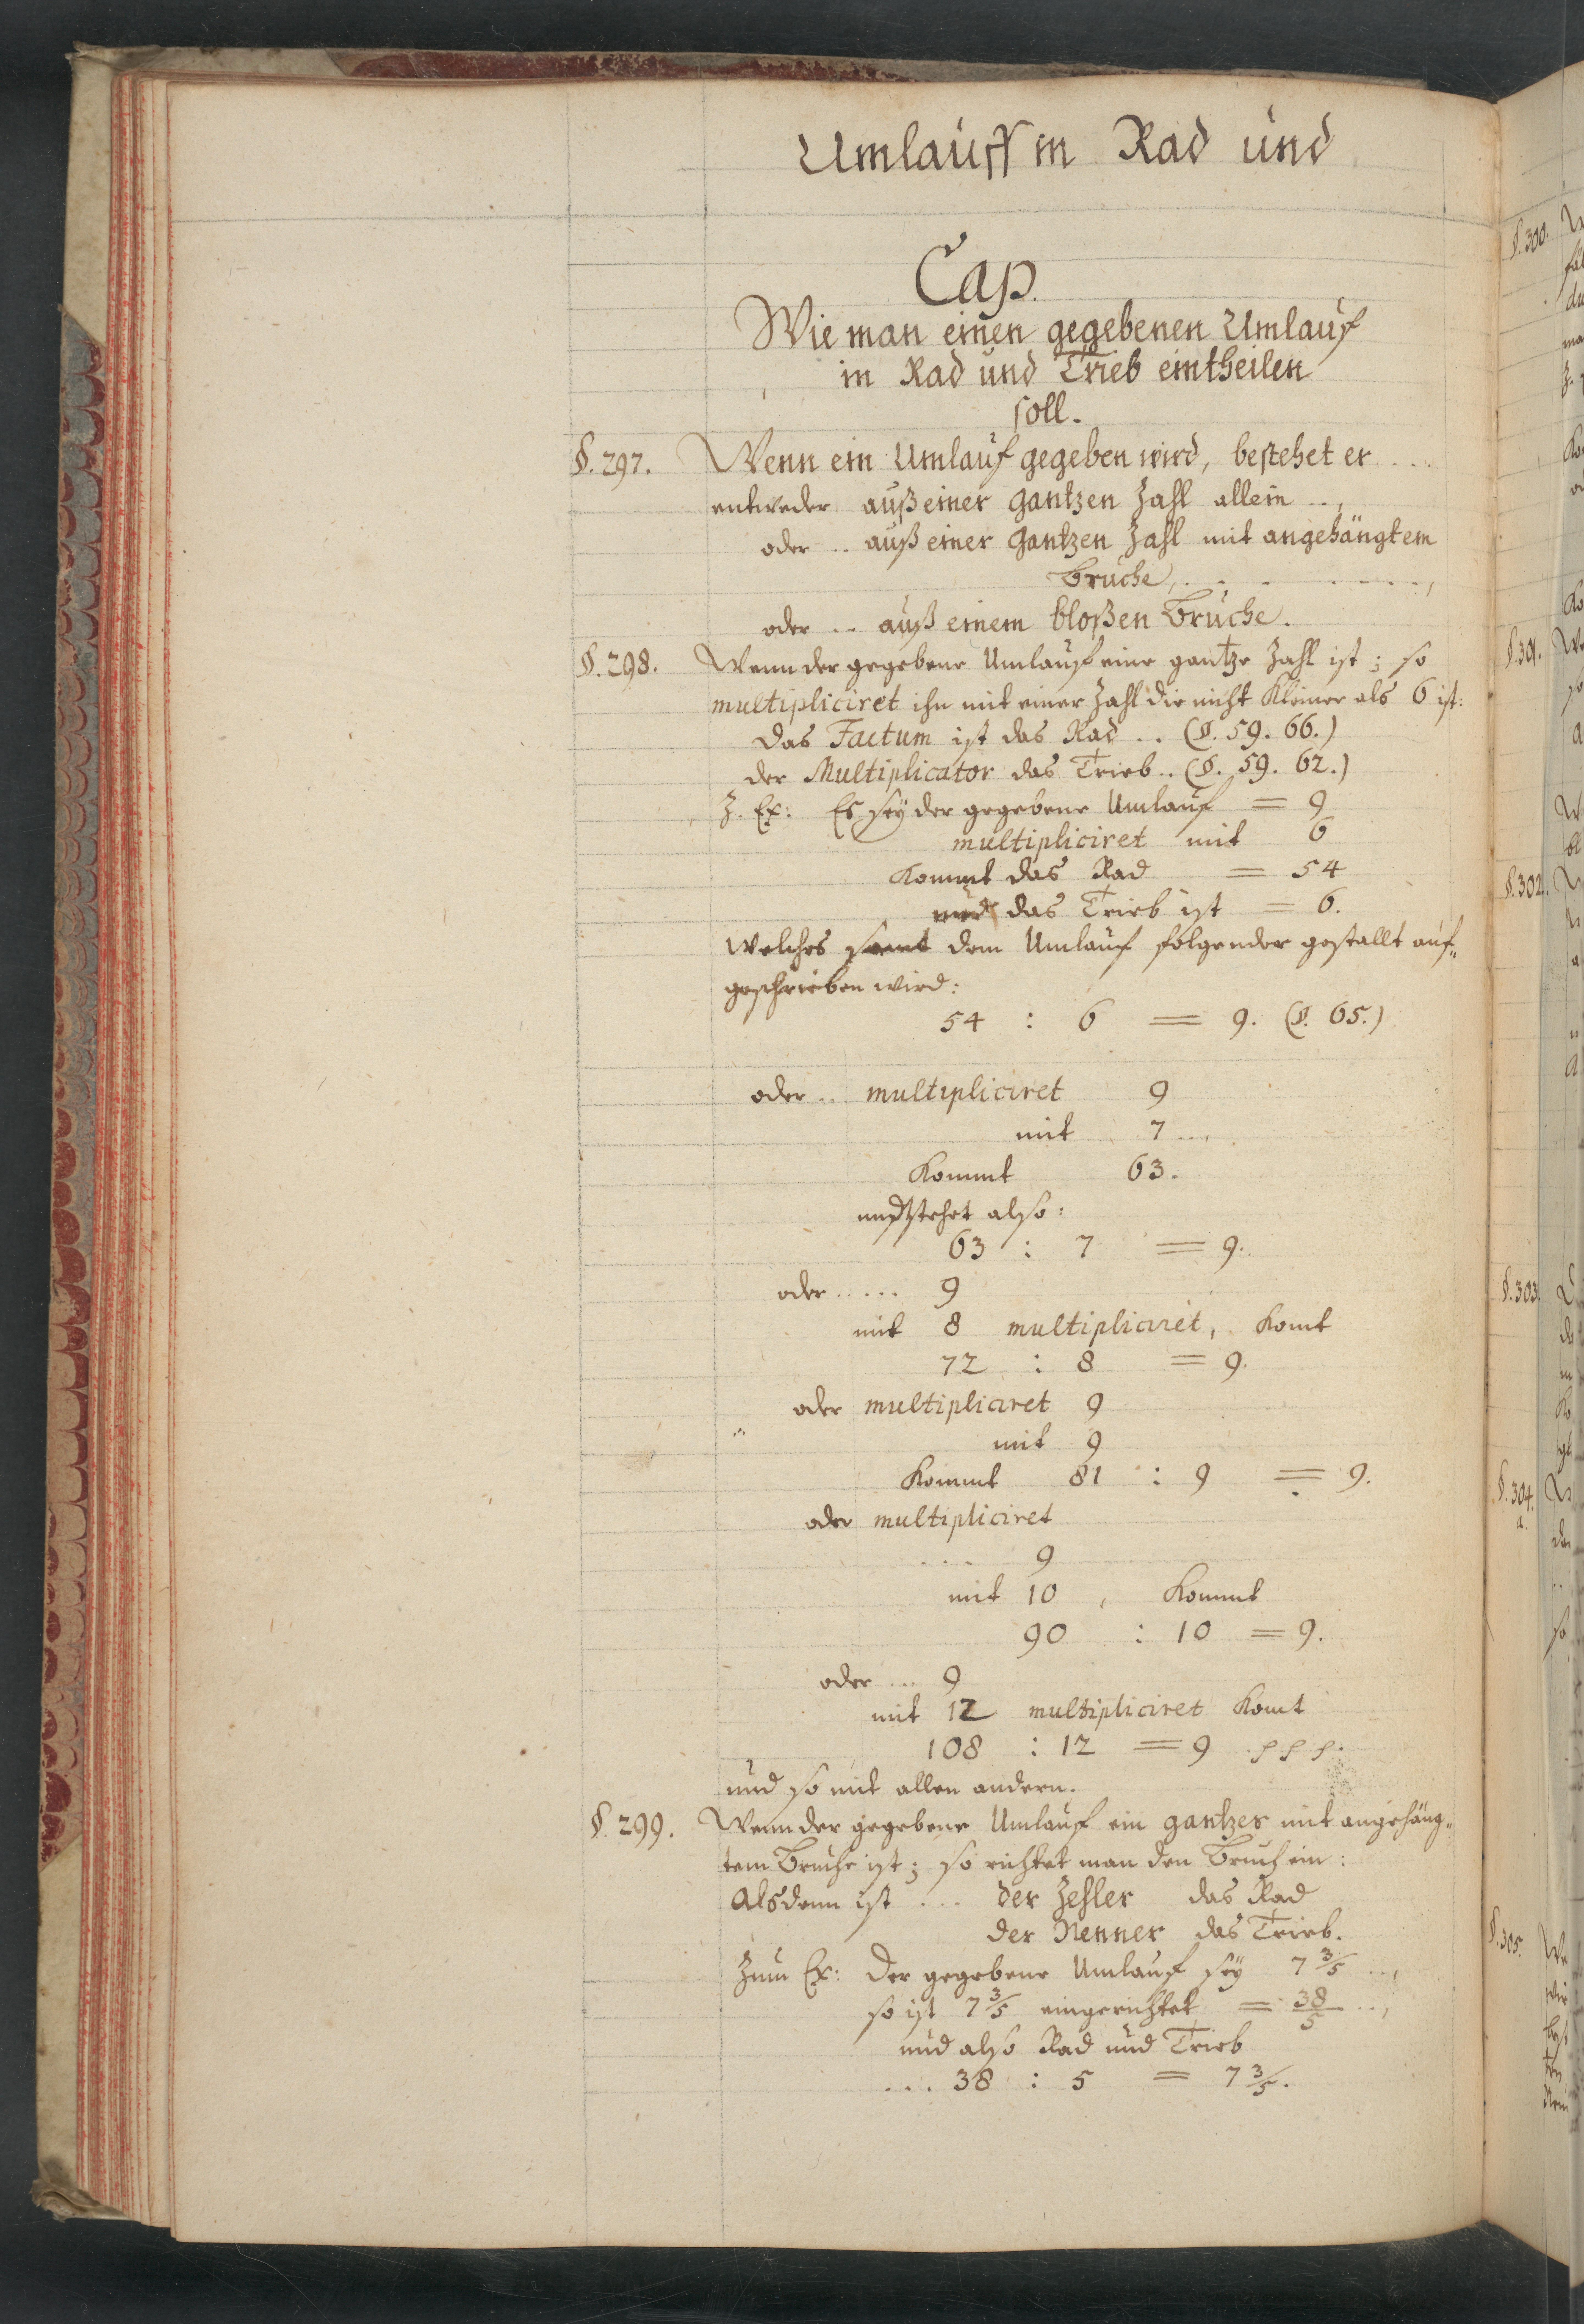 Umlauff in Rad und
Cap.
Wie man einen gegebenen Umlauf
in Rad und Trieb eintheilen
soll.
§. 297. Wenn ein Umlauf gegeben wird, bestehet er ....
entweder auß einer gantzen Zahl allein ..,
oder .. auß einer gantzen Zahl mit angehängtem
bruche, . . . . . . . ,
oder .. auß einem bloßen bruche.
§. 298. Wenn der gegebene Umlauf eine gantze Zahl ist; so
multipliciret ihn mit einer Zahl die nicht kleiner als 6 ist:
Das Factum ist das Rad .. (§. 59. 66.)
der Multiplicator das Trieb .. (§. 59. 62.)
Z. Ex: Es sey der gegebene Umlauf = 9
multipliciret mit 6
kommt das Rad = 54
und das Trieb ist = 6.
Welches samt dem Umlauf folgender gestallt auf„
geschrieben wird:
54 : 6 = 9. (§. 65.)
oder .. multipliciret 9
mit 7 ...,
kommt 63.
und stehet also:
63 : 7 = 9.
oder ..... 9
mit 8 multipliciret, komt
72 : 8 = 9.
oder multipliciret 9
mit 9
kommt 81 : 9 = 9.
oder multipliciret
.... 9
mit 10 , kommt
90 : 10 = 9.
oder ... 9
mit 12 multipliciret komt
108 : 12 = 9
und so mit allen andern.
§. 299. Wenn der gegebene Umlauf ein gantzes mit angehäng„
tem Bruche ist; so richtet man den Bruch ein:
Alsdenn ist .... der Zehler das Rad
der Nenner das Trieb.
Zum Ex: Der gegebene Umlauf sey 7 3/5 ...,
so ist 7 3/5 eingerichtet = 38/5 ...,
und also Rad und Trieb
.... 38 : 5 = 7 3/5.
§. 300.
§. 301.
§. 302.
§. 303.
§. 304.
a.
§. 305.